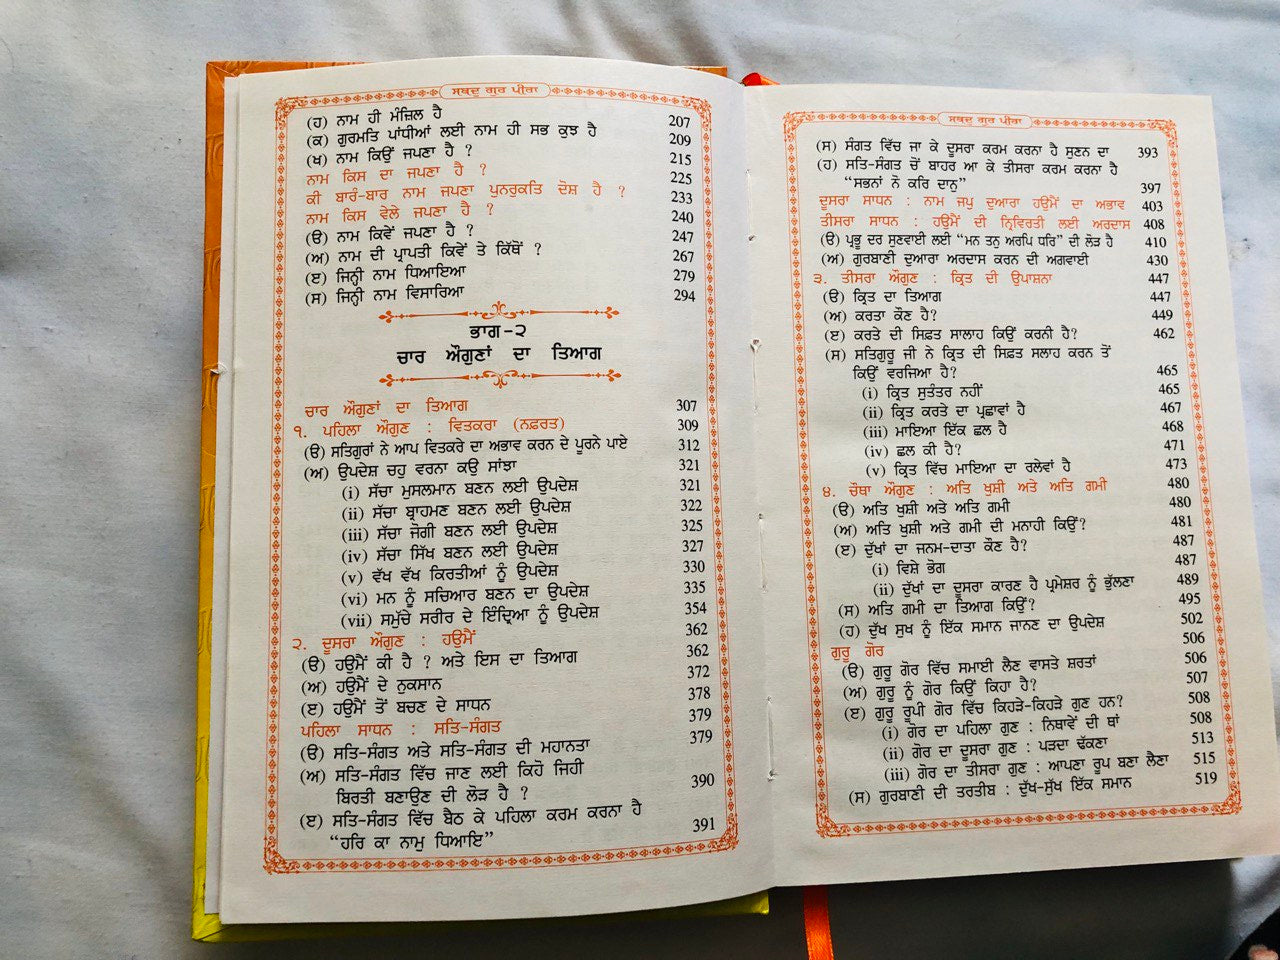 ਸਬਦੁ ਗੁਰ ਪੀਰਾ
(ਹ) ਨਾਮ ਹੀ ਮੰਜ਼ਿਲ ਹੈ 207
(ਕ) ਗੁਰਮਤਿ ਪਾਂਧੀਆਂ ਲਈ ਨਾਮ ਹੀ ਸਭ ਕੁਝ ਹੈ 209
(ਖ) ਨਾਮ ਕਿਉਂ ਜਪਣਾ ਹੈ ? 215
ਨਾਮ ਕਿਸ ਦਾ ਜਪਣਾ ਹੈ ? 225
ਕੀ ਬਾਰੰ-ਬਾਰ ਨਾਮ ਜਪਣਾ ਪੁਨਰੁਕਤਿ ਦੋਸ਼ ਹੈ ? 233
ਨਾਮ ਕਿਸ ਵੇਲੇ ਜਪਣਾ ਹੈ ? 240
(ੳ) ਨਾਮ ਕਿਵੇਂ ਜਪਣਾ ਹੈ ? 247
(ਅ) ਨਾਮ ਦੀ ਪ੍ਰਾਪਤੀ ਕਿਵੇਂ ਤੇ ਕਿੱਥੋਂ ? 267
(ੲ) ਜਿਨ੍ਹੀ ਨਾਮ ਧਿਆਇਆ 279
(ਸ) ਜਿਨ੍ਹੀ ਨਾਮ ਵਿਸਾਰਿਆ 294
ਭਾਗ-੨
ਚਾਰ ਔਗੁਣਾਂ ਦਾ ਤਿਆਗ
ਚਾਰ ਔਗੁਣਾਂ ਦਾ ਤਿਆਗ 307
੧. ਪਹਿਲਾ ਔਗੁਣ : ਵਿਤਕਰਾ (ਨਫ਼ਰਤ) 309
(ੳ) ਸਤਿਗੁਰਾਂ ਨੇ ਆਪ ਵਿਤਕਰੇ ਦਾ ਅਭਾਵ ਕਰਨ ਦੇ ਪੂਰਨੇ ਪਾਏ 312
(ਅ) ਉਪਦੇਸ਼ ਚਹੁ ਵਰਨਾ ਕਉ ਸਾਂਝਾ 321
(i) ਸੱਚਾ ਮੁਸਲਮਾਨ ਬਣਨ ਲਈ ਉਪਦੇਸ਼ 321
(ii) ਸੱਚਾ ਬ੍ਰਾਹਮਣ ਬਣਨ ਲਈ ਉਪਦੇਸ਼ 322
(iii) ਸੱਚਾ ਜੋਗੀ ਬਣਨ ਲਈ ਉਪਦੇਸ਼ 325
(iv) ਸੱਚਾ ਸਿੱਖ ਬਣਨ ਲਈ ਉਪਦੇਸ਼ 327
(v) ਵੱਖ ਵੱਖ ਕਿਰਤੀਆਂ ਨੂੰ ਉਪਦੇਸ਼ 330
(vi) ਮਨ ਨੂੰ ਸਚਿਆਰ ਬਣਨ ਦਾ ਉਪਦੇਸ਼ 335
(vii) ਸਮੁੱਚੇ ਸਰੀਰ ਦੇ ਇੰਦ੍ਰਿਆ ਨੂੰ ਉਪਦੇਸ਼ 354
੨. ਦੂਸਰਾ ਔਗੁਣ : ਹਉਮੈਂ 362
(ੳ) ਹਉਮੈਂ ਕੀ ਹੈ ? ਅਤੇ ਇਸ ਦਾ ਤਿਆਗ 362
(ਅ) ਹਉਮੈਂ ਦੇ ਨੁਕਸਾਨ 372
(ੲ) ਹਉਮੈਂ ਤੋਂ ਬਚਣ ਦੇ ਸਾਧਨ 378
ਪਹਿਲਾ ਸਾਧਨ : ਸਤਿ-ਸੰਗਤ 379
(ੳ) ਸਤਿ-ਸੰਗਤ ਅਤੇ ਸਤਿ-ਸੰਗਤ ਦੀ ਮਹਾਨਤਾ 379
(ਅ) ਸਤਿ-ਸੰਗਤ ਵਿੱਚ ਜਾਣ ਲਈ ਕਿਹੋ ਜਿਹੀ
ਬਿਰਤੀ ਬਣਾਉਣ ਦੀ ਲੋੜ ਹੈ ? 390
(ੲ) ਸਤਿ-ਸੰਗਤ ਵਿੱਚ ਬੈਠ ਕੇ ਪਹਿਲਾ ਕਰਮ ਕਰਨਾ ਹੈ
“ਹਰਿ ਕਾ ਨਾਮੁ ਧਿਆਇ” 391
ਸਬਦੁ ਗੁਰ ਪੀਰਾ
(ਸ) ਸੰਗਤ ਵਿੱਚ ਜਾ ਕੇ ਦੂਸਰਾ ਕਰਮ ਕਰਨਾ ਹੈ ਸੁਣਨ ਦਾ 393
(ਹ) ਸਤਿ-ਸੰਗਤ ਚੋਂ ਬਾਹਰ ਆ ਕੇ ਤੀਸਰਾ ਕਰਮ ਕਰਨਾ ਹੈ
“ਸਭਨਾਂ ਨੋ ਕਰਿ ਦਾਨੁ” 397
ਦੂਸਰਾ ਸਾਧਨ : ਨਾਮ ਜਪੁ ਦੁਆਰਾ ਹਉਮੈਂ ਦਾ ਅਭਾਵ 403
ਤੀਸਰਾ ਸਾਧਨ : ਹਉਮੈਂ ਦੀ ਨ੍ਰਿਵਿਰਤੀ ਲਈ ਅਰਦਾਸ 408
(ੳ) ਪ੍ਰਭੂ ਦਰ ਸੁਣਵਾਈ ਲਈ “ਮਨ ਤਨੁ ਅਰਪਿ ਧਰਿ” ਦੀ ਲੋੜ ਹੈ 410
(ਅ) ਗੁਰਬਾਣੀ ਦੁਆਰਾ ਅਰਦਾਸ ਕਰਨ ਦੀ ਅਗਵਾਈ 430
੩. ਤੀਸਰਾ ਔਗੁਣ : ਕ੍ਰਿਤ ਦੀ ਉਪਾਸ਼ਨਾ 447
(ੳ) ਕ੍ਰਿਤ ਦਾ ਤਿਆਗ 447
(ਅ) ਕਰਤਾ ਕੌਣ ਹੈ? 449
(ੲ) ਕਰਤੇ ਦੀ ਸਿਫ਼ਤ ਸਾਲਾਹ ਕਿਉਂ ਕਰਨੀ ਹੈ? 462
(ਸ) ਸਤਿਗੁਰੂ ਜੀ ਨੇ ਕ੍ਰਿਤ ਦੀ ਸਿਫ਼ਤ ਸਲਾਹ ਕਰਨ ਤੋਂ
ਕਿਉਂ ਵਰਜਿਆ ਹੈ? 465
(i) ਕ੍ਰਿਤ ਸੁਤੰਤਰ ਨਹੀਂ 465
(ii) ਕ੍ਰਿਤ ਕਰਤੇ ਦਾ ਪ੍ਰਛਾਵਾਂ ਹੈ 467
(iii) ਮਾਇਆ ਇੱਕ ਛਲ ਹੈ 468
(iv) ਛਲ ਕੀ ਹੈ? 471
(v) ਕ੍ਰਿਤ ਵਿੱਚ ਮਾਇਆ ਦਾ ਰਲੇਵਾਂ ਹੈ 473
੪. ਚੌਥਾ ਔਗੁਣ : ਅਤਿ ਖੁਸ਼ੀ ਅਤੇ ਅਤਿ ਗਮੀ 480
(ੳ) ਅਤਿ ਖੁਸ਼ੀ ਅਤੇ ਅਤਿ ਗਮੀ 480
(ਅ) ਅਤਿ ਖੁਸ਼ੀ ਅਤੇ ਗਮੀ ਦੀ ਮਨਾਹੀ ਕਿਉਂ? 481
(ੲ) ਦੁੱਖਾਂ ਦਾ ਜਨਮ-ਦਾਤਾ ਕੌਣ ਹੈ? 487
(i) ਵਿਸ਼ੇ ਭੋਗ 487
(ii) ਦੁੱਖਾਂ ਦਾ ਦੂਸਰਾ ਕਾਰਣ ਹੈ ਪ੍ਰਮੇਸ਼ਰ ਨੂੰ ਭੁੱਲਣਾ 489
(ਸ) ਅਤਿ ਗਮੀ ਦਾ ਤਿਆਗ ਕਿਉਂ? 495
(ਹ) ਦੁੱਖ ਸੁਖ ਨੂੰ ਇੱਕ ਸਮਾਨ ਜਾਨਣ ਦਾ ਉਪਦੇਸ਼ 502
ਗੁਰੂ ਗੋਰ 506
(ੳ) ਗੁਰੂ ਗੋਰ ਵਿੱਚ ਸਮਾਈ ਲੈਣ ਵਾਸਤੇ ਸ਼ਰਤਾਂ 506
(ਅ) ਗੁਰੂ ਨੂੰ ਗੋਰ ਕਿਉਂ ਕਿਹਾ ਹੈ? 507
(ੲ) ਗੁਰੂ ਰੂਪੀ ਗੋਰ ਵਿੱਚ ਕਿਹੜੇ-ਕਿਹੜੇ ਗੁਣ ਹਨ? 508
(i) ਗੋਰ ਦਾ ਪਹਿਲਾ ਗੁਣ : ਨਿਥਾਵੇਂ ਦੀ ਥਾਂ 508
(ii) ਗੋਰ ਦਾ ਦੂਸਰਾ ਗੁਣ : ਪੜਦਾ ਢੱਕਣਾ 513
(iii) ਗੋਰ ਦਾ ਤੀਸਰਾ ਗੁਣ : ਆਪਣਾ ਰੂਪ ਬਣਾ ਲੈਣਾ 515
(ਸ) ਗੁਰਬਾਣੀ ਦੀ ਤਰਤੀਬ : ਦੁੱਖ-ਸੁੱਖ ਇੱਕ ਸਮਾਨ 519